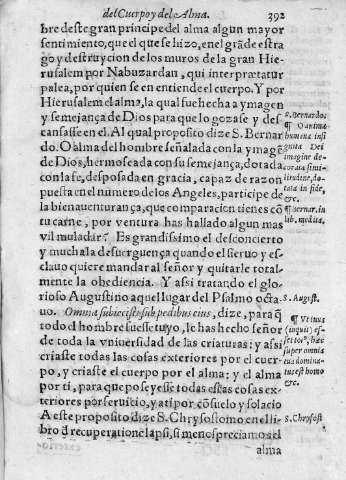 del Cuerpo y del Alma. 392
bre deste gran principe del alma algun mayor
sentimiento, que el que se hizo, en el grãde estra
go y destruycion de los muros de la gran Hie-
rusalem por Nabuzardan, qui interpretatur
palea, por quien se entiende el cuerpo. Y por
Hierusalem el alma, la qual fue hecha a ymagen
y semejança de Dios para que lo gozase y des
cansasse en el. Al qual proposito dize S. Bernar
do. O alma del hombre señalada con la ymagẽ
de Dios, hermoseada con su semejança, dotada
con la fe, desposada en gracia, capaz de razon
puesta en el número de los Angeles, participe de
la bienauenturança, que comparacion tienes cõ
tu carne, por ventura has hallado algun mas
vil muladar? Es grandissimo el desconcierto
y mucha la desuerguença quando el sieruo y es-
clauo quiere mandar al señor y quitarle total-
mente la obediencia. Y assi tratando el glo-
rioso Augustino aquel lugar del Psalmo octa
uo. Omnia subiecisti sub pedibus eius, dize, para q̃
todo el hombre fuesse tuyo, le has hecho señor
de toda la vniuersidad de las criaturas: y assi
criaste todas las cosas exteriores por el cuer-
po, y criaste el cuerpo por el alma; y el alma
por ti, para que poseyesse todas estas cosas ex-
teriores por seruicio, y a ti por cõsuelo y solacio
A este proposito dize S. Chrysostomo en el li-
bro d̃ recuperatione lapsi, si menospreciamos el
alma
S. Bernardo.
¶ O anima
humana insi
gnita Dei
imagine de-
corata simi-
litudine, do-
tata in fide,
&c.
¶ Bernar. in
lib. medita.
S. August.
¶ Vt tuus
(inquit) es-
set totus, hãc
super omnia
eius domina-
tus est homo
&c.
S. Chrysost